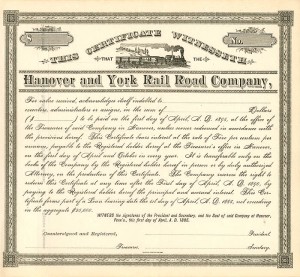 $
No.
THIS CERTIFICATE WITNESSETH
THAT THE
Hanover and York Rail Road Company,
For value received, acknowledges itself indebted to
or order, administrators or assigns, in the sum of Dollars
($ ) to be paid on the first day of April, A. D. 1895, at the office of
the Treasurer of said Company in Hanover, unless sooner redeemed in accordance with
the provisions hereof. This Certificate bears interest at the rate of Five per centum per
annum, payable to the Registered holder hereof at the Treasurer's office in Hanover,
on the first day of April and October in every year. It is transferable only on the
books of the Company by the Registered holder hereof in person or by duly authorized
Attorney, on the production of this Certificate. The Company reserves the right to
redeem this Certificate at any time after the First day of April, A. D. 1890, by
paying to the Registered holder the principal and accrued interest. This Certificate
forms part of a Loan bearing date the 1st of April, A. D. 1885, not exceeding
in the aggregate $25,000.
WITNESS the signatures of the President and Secretary, and the Seal of said Company at Hanover,
Penn'a., this first day of April, A. D. 1885.
Countersigned and Registered,
President.
Treasurer.
Secretary.